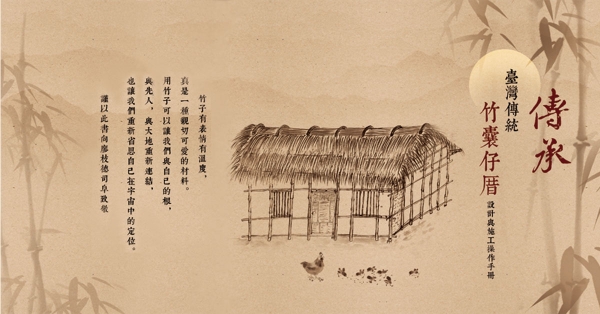 傳承
臺灣傳統
竹囊仔厝
設計與施工操作手冊
竹子有表情有溫度,
真是一種親切可愛的材料。
用竹子可以讓我們與自己的根,
與先人,與大地重新連結,
也讓我們重新省思自己在宇宙中的定位。
謹以此書向廖枝德司阜致敬